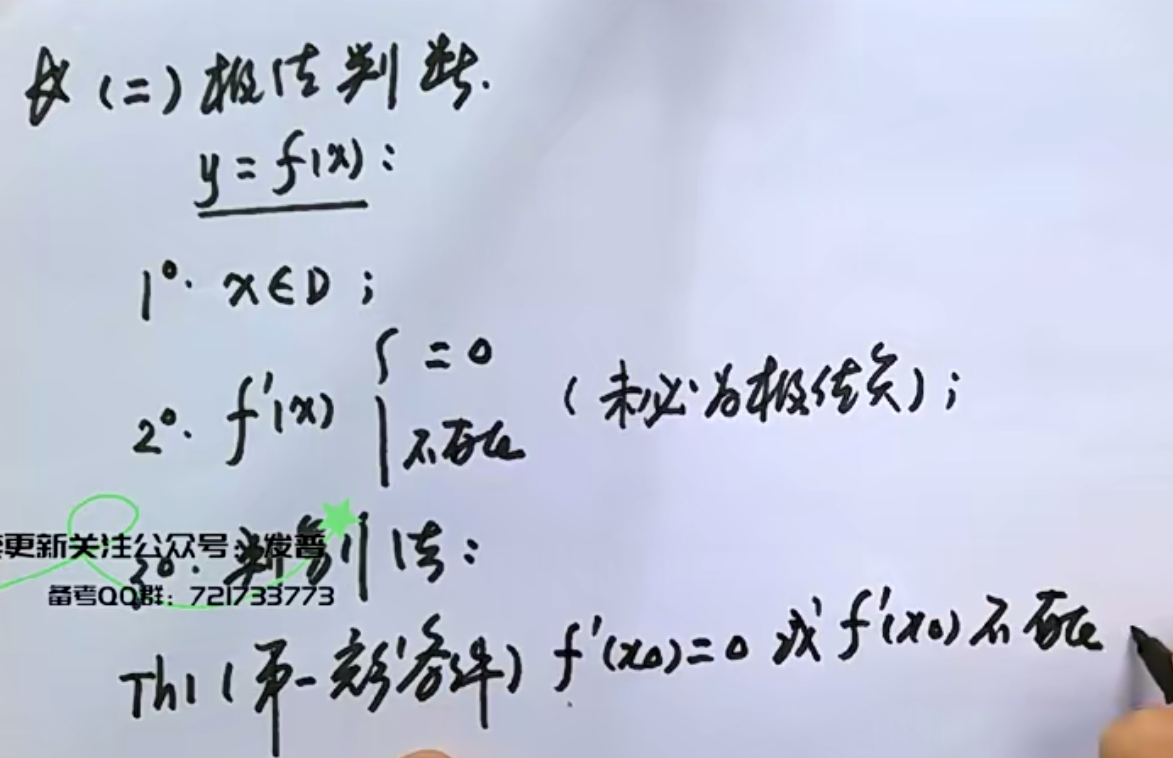 (二) 极值判断.
y = f(x):
1°. x∈D ;
2°. f'(x) { =0 | 不存在 (未必为极值点) ;
更新关注公众号:发普
3°. 判别法:
备考QQ群: 721733773
Th1 (第一充分条件) f'(x₀)=0 或 f'(x₀) 不存在